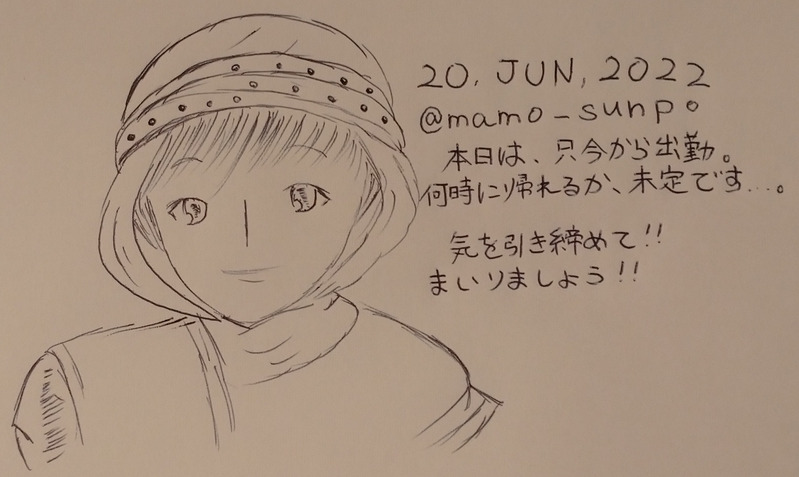 20. JUN, 2022
@mamo_sunpo
本日は、只今から出勤。
何時に帰れるか、未定です…。
気を引き締めて!!
まいりましょう!!